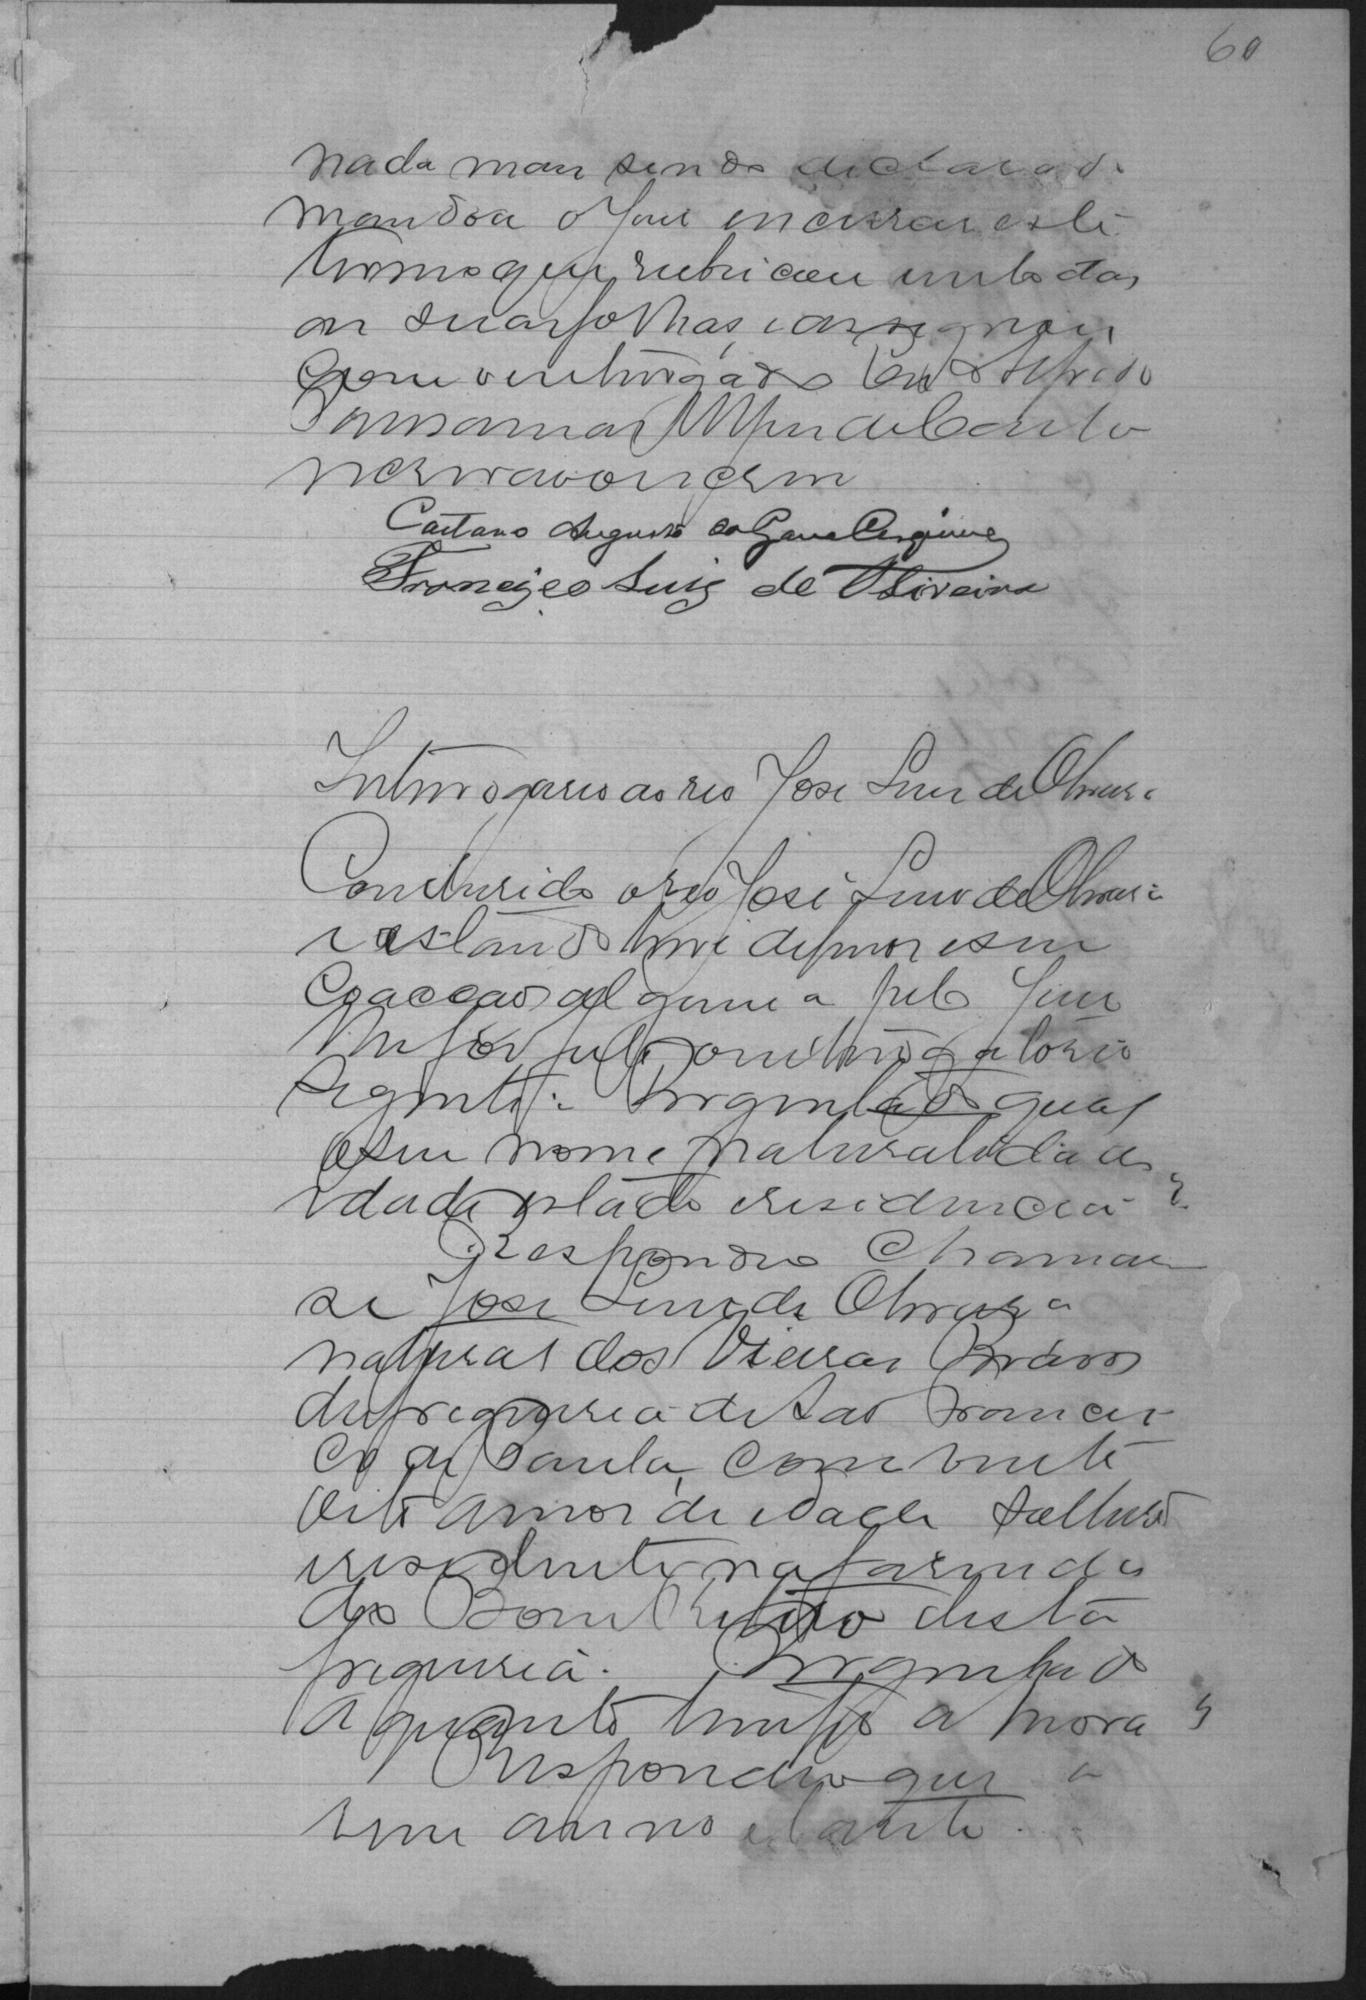 60
nada mais sendo declarado
mandou o Juiz encerrar este
termo que rubricou em todas
as suas folhas, e assignou
com o interrogado Eu Alfredo
escrivão o escrevi
Caetano Augusto da Gama Cerqueira
Francisco Luiz de Oliveira
Interrogario ao reo José Luis de Oliveira
Condusido o reo José Luis de Oliveira
e estando livre de ferros e sem
coacção alguma pelo Juiz
lhe foi feito o interrogatorio
seguinte: Perguntado qual
o seu nome naturalidade
idade estado e residencia?
Respondeo chamar
se José Luis de Oliveira
natural dos Vieiras Bravos
da freguesia de São Francis
co de Paula, com vinte
oito annos de idade solteiro
e residente na fasenda
do Bom Retiro desta
freguesia. Perguntado
a quanto tempo a mora?
Respondeo que a
um anno e tanto.